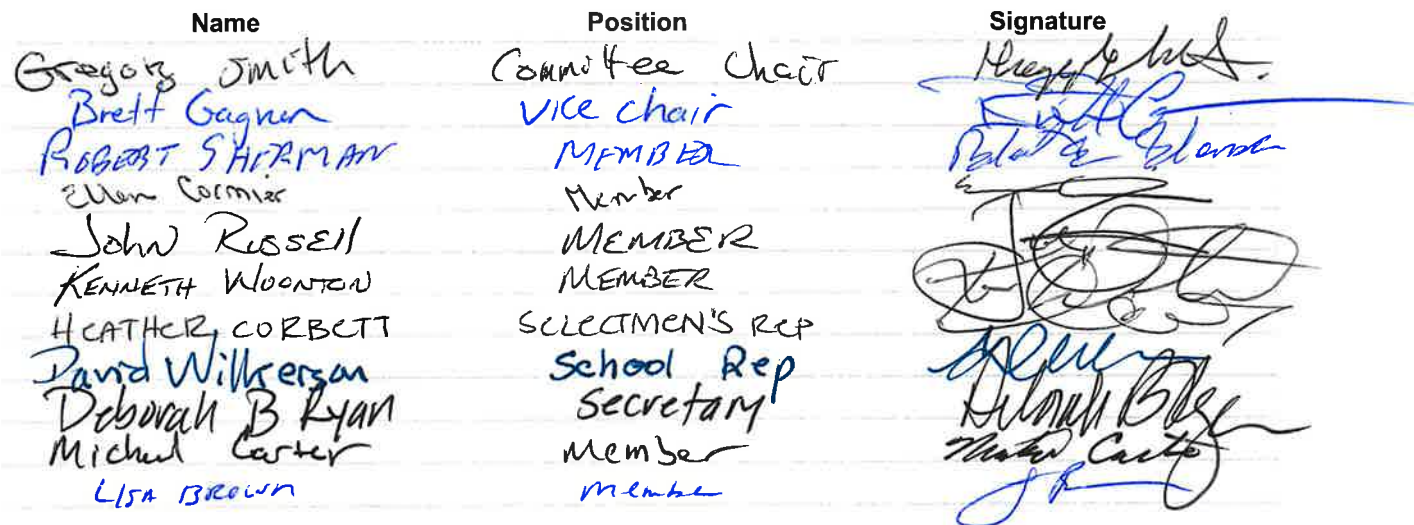 Name Position Signature
Gregory Smith Committee Chair
Brett Gagnon Vice chair
ROBERT SHERMAN MEMBER
Ellen Cormier Member
John Russell MEMBER
KENNETH WOONTON MEMBER
HEATHER CORBETT SELECTMEN'S REP
David Wilkerson School Rep
Deborah B Ryan Secretary Deborah B Ryan
Michael Carter Member
LISA BROWN Member